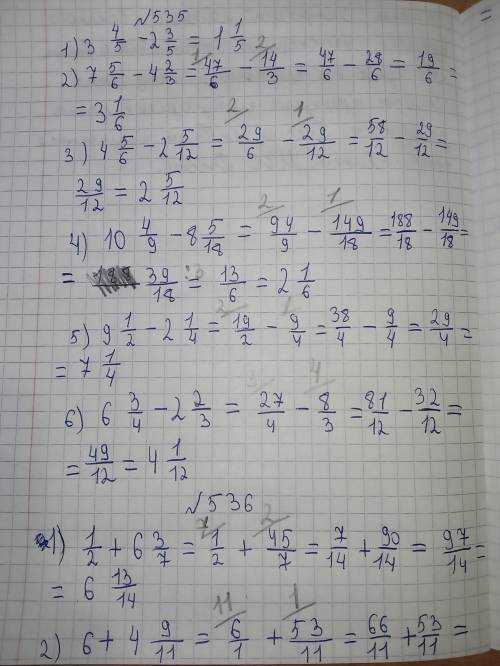 №535
1) 3 4/5 - 2 3/5 = 1 1/5
2) 7 5/6 - 4 2/3 = 47/6 - 14/3 = 47/6 - 28/6 = 19/6 =
= 3 1/6
3) 4 5/6 - 2 5/12 = 29/6 - 29/12 = 58/12 - 29/12 =
29/12 = 2 5/12
4) 10 4/9 - 8 5/18 = 94/9 - 149/18 = 188/18 - 149/18 =
= 39/18 = 13/6 = 2 1/6
5) 9 1/2 - 2 1/4 = 19/2 - 9/4 = 38/4 - 9/4 = 29/4 =
= 7 1/4
6) 6 3/4 - 2 2/3 = 27/4 - 8/3 = 81/12 - 32/12 =
= 49/12 = 4 1/12
№536
1) 1/2 + 6 3/7 = 1/2 + 45/7 = 7/14 + 90/14 = 97/14 =
= 6 13/14
2) 6 + 4 9/11 = 6/1 + 53/11 = 66/11 + 53/11 =